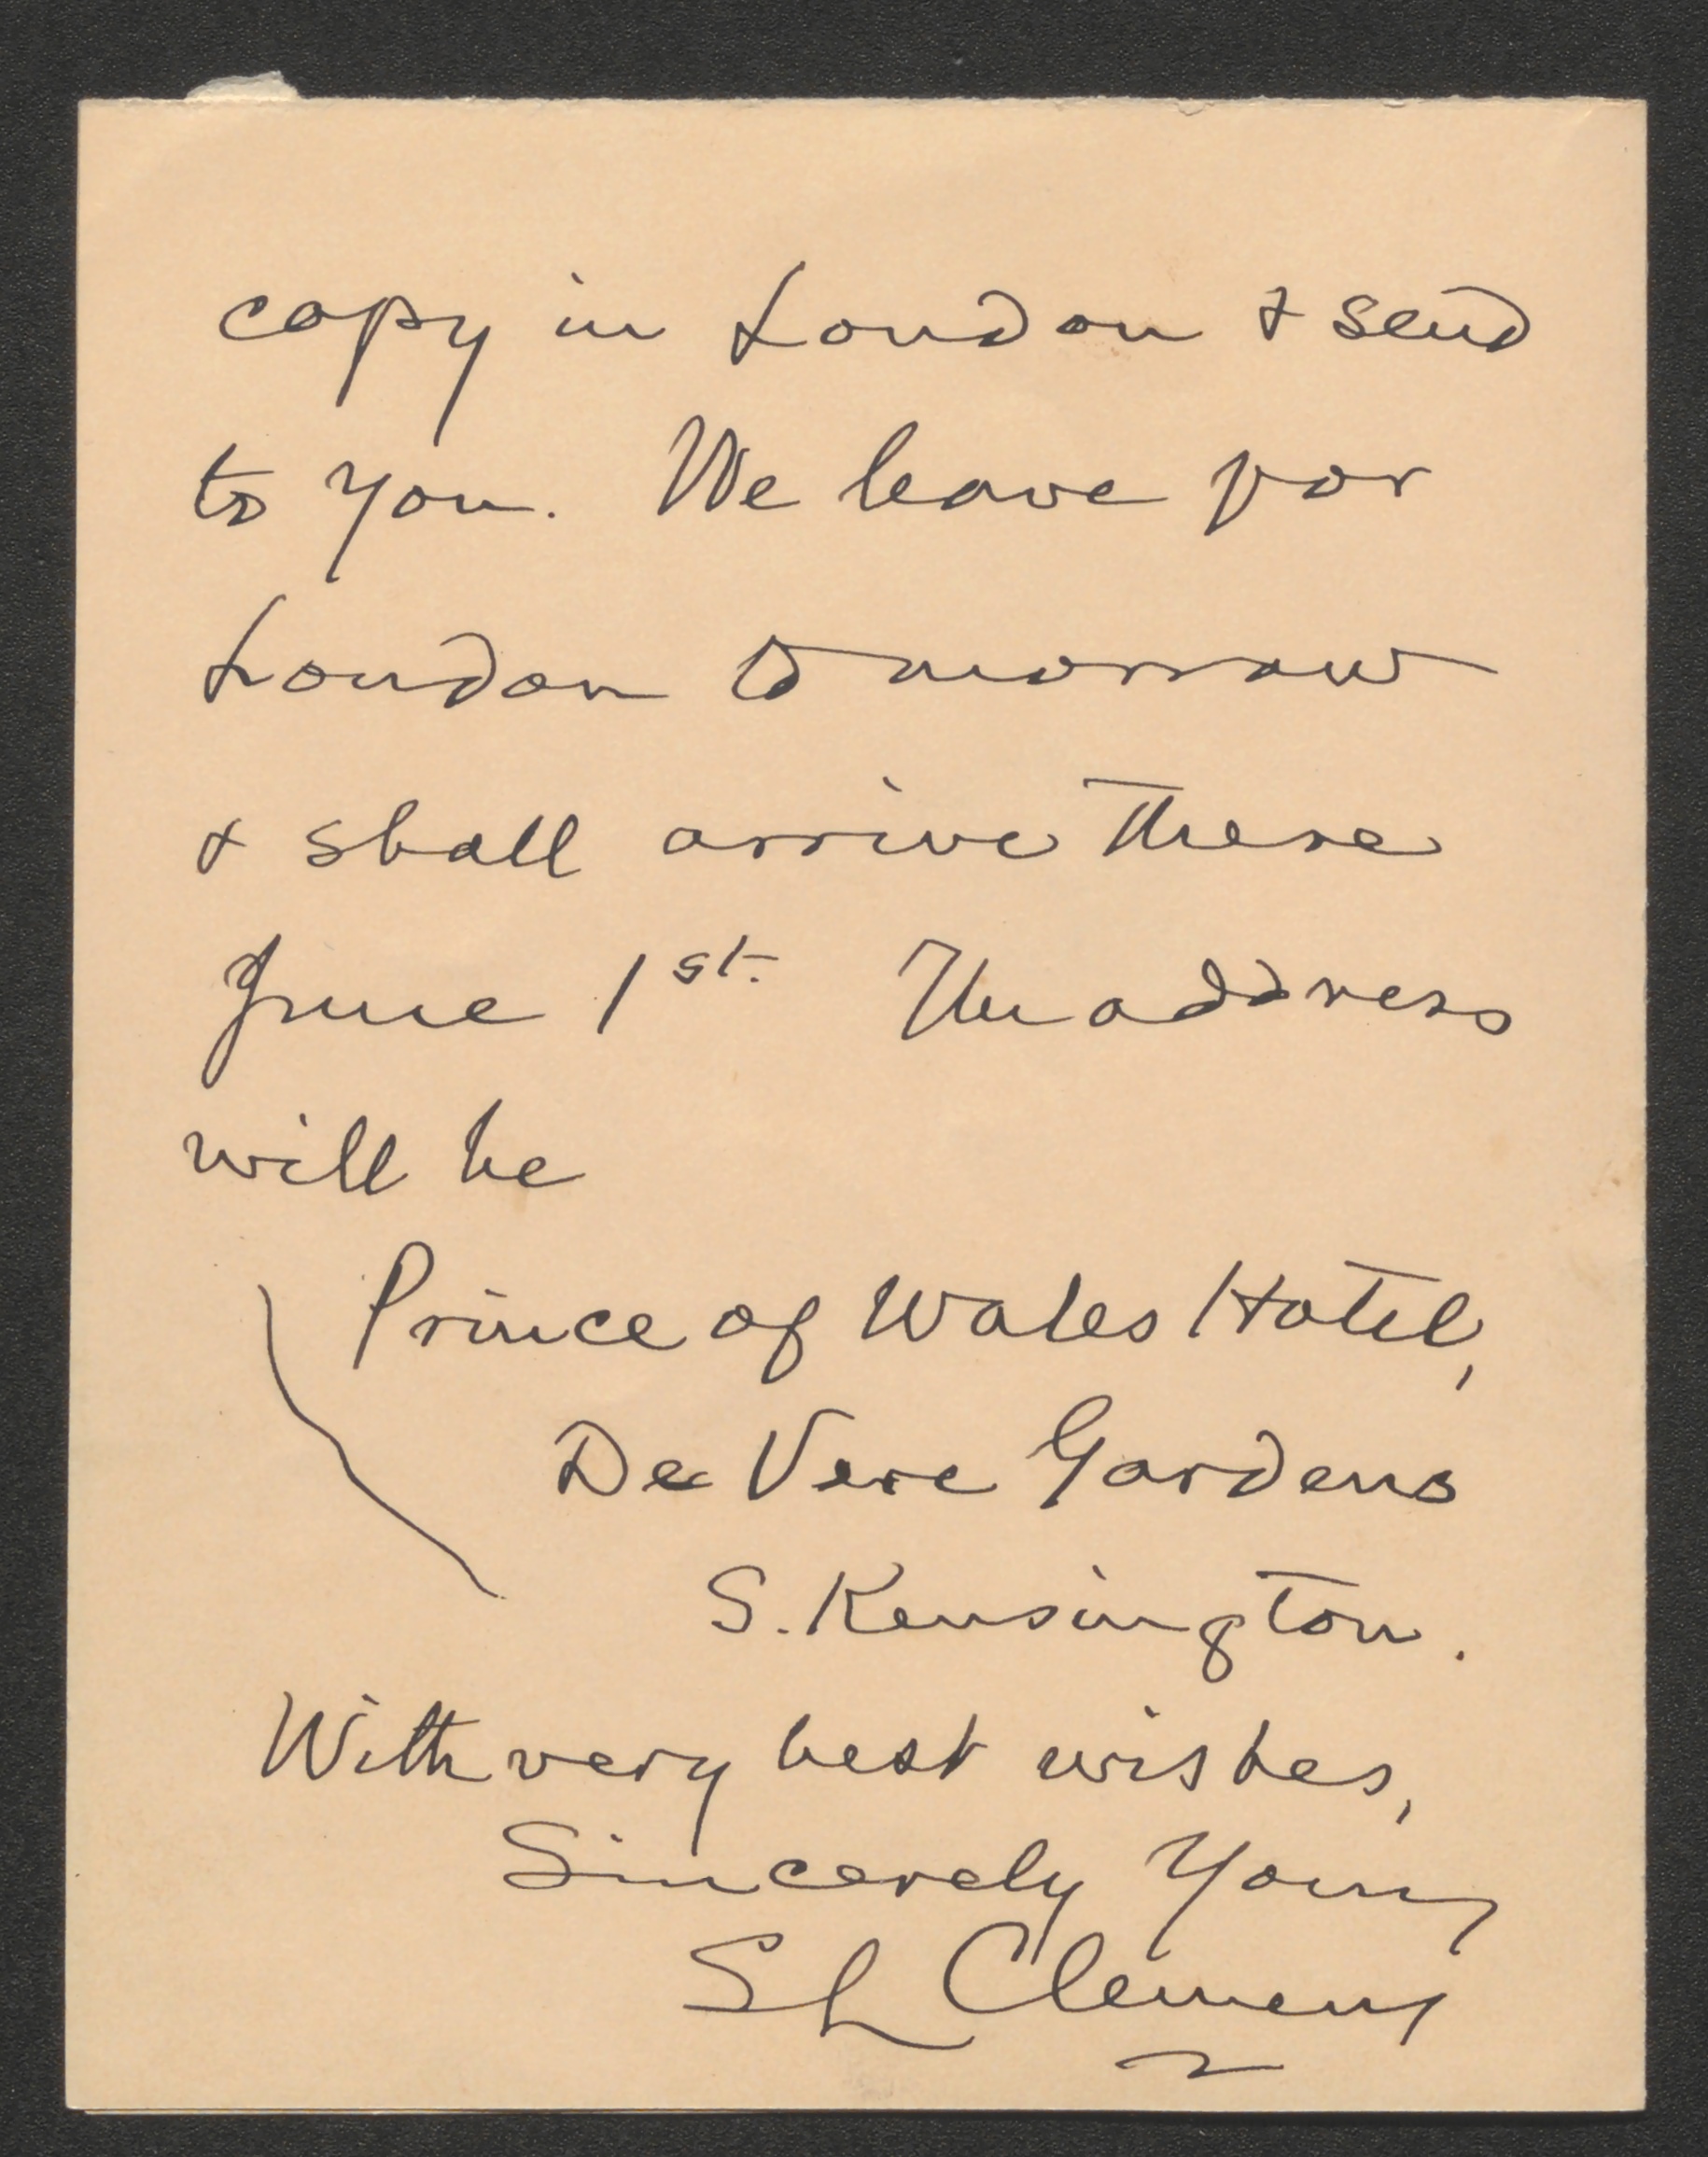 copy in London & send
to you. We leave for
London tomorrow
& shall arrive there
June 1st. The address
will be
Prince of Wales Hotel,
De Vere Gardens
S. Kensington.
With very best wishes,
Sincerely Yours
SL Clemens